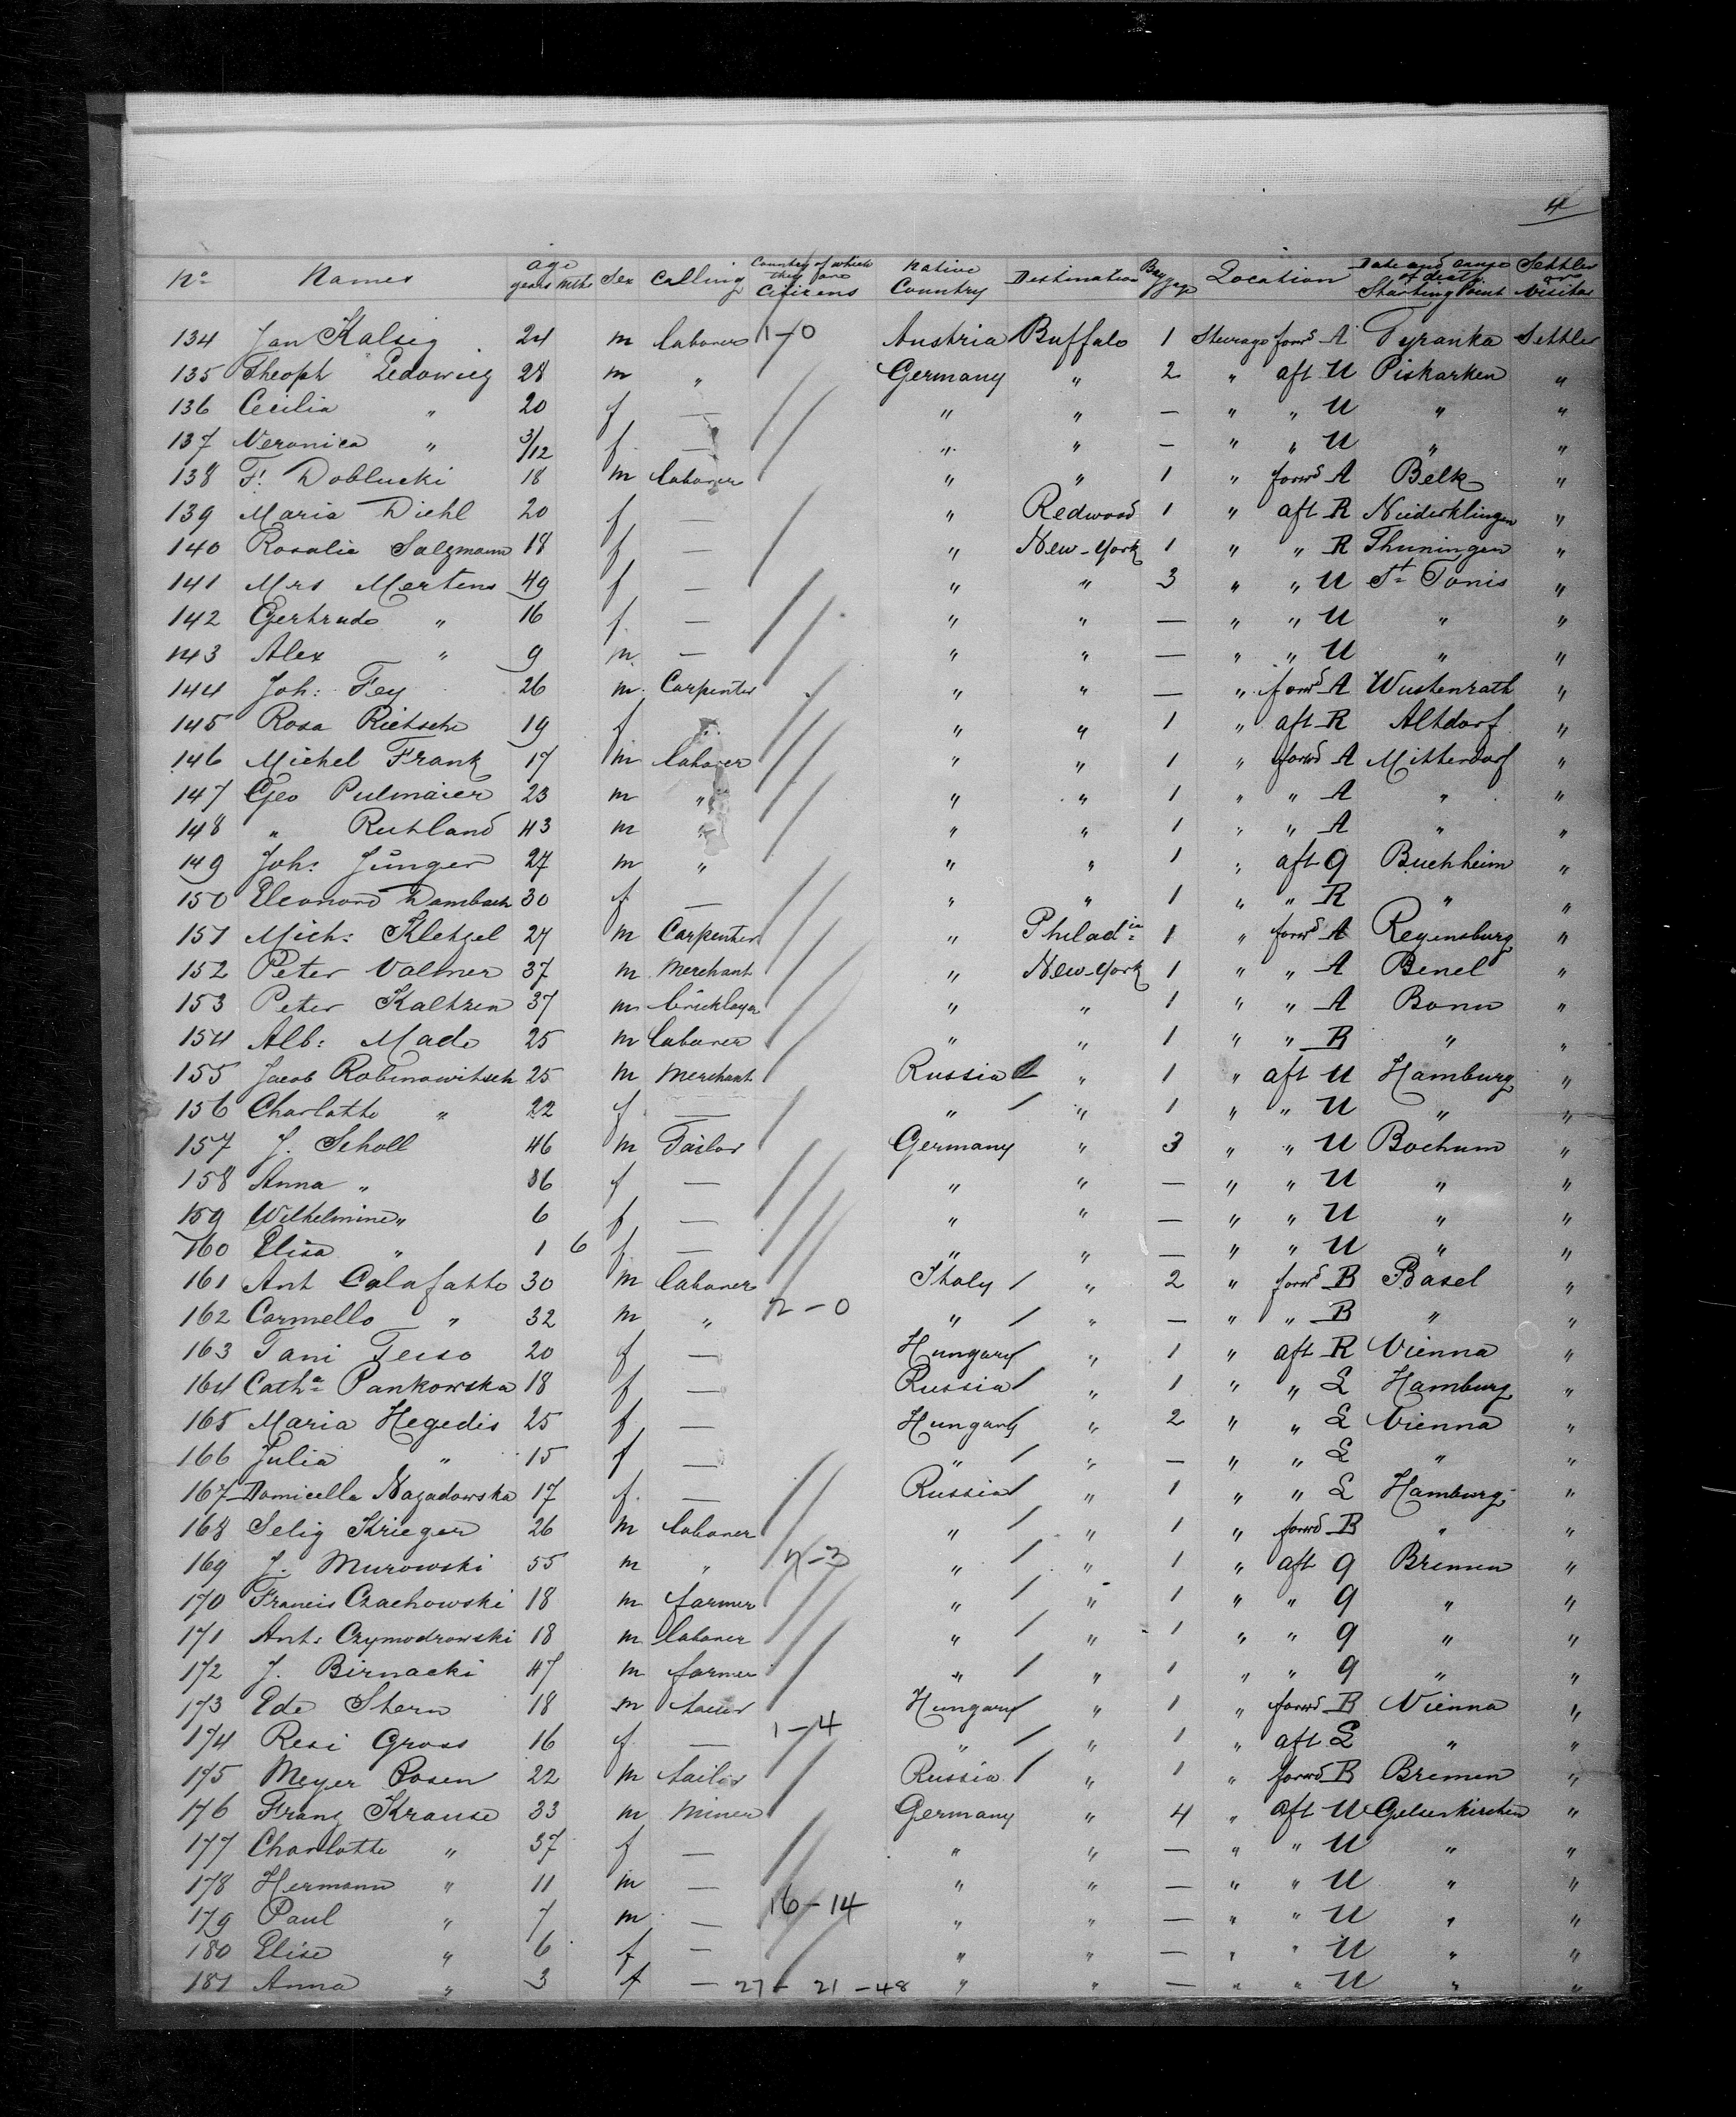 4
No Names age years Mths Sex Calling Country of which they are Citizens Native Country Destination Baggage Location Date and cause of death Starting Point Settler or Visitor
134 Jan Kalsig 24 m labourer 1-0 Austria Buffalo 1 Steerage forwd A Tyranka Settler
135 Theoph Ledowicz 28 m " Germany " 2 " aft U Piskarken "
136 Cecilia " 20 f — " " — " " U " "
137 Veronica " 3/12 f — " " — " " U " "
138 F. Doblucki 18 m labourer " " 1 " forwd A Belk "
139 Maria Diehl 20 f — " Redwood 1 " aft R Niederklingen "
140 Rosalie Salzmann 18 f — " New-York 1 " " R Thuningen "
141 Mrs Mertens 49 f — " " 3 " " U St Tonis "
142 Gertrude " 16 f — " " — " " U " "
143 Alex " 9 m — " " — " " U " "
144 Joh: Fey 26 m Carpenter " " — " forwd A Wustenrath "
145 Rosa Rietsch 19 f " " 1 " aft R Altdorf "
146 Michel Frank 17 m labourer " " 1 " forwd A Mitterdorf "
147 Geo Pulmaier 23 m " " " 1 " " A " "
148 " Ruhland 43 m " " " 1 " " A " "
149 Joh: Junger 27 m " " " 1 " aft G Buchheim "
150 Eleonora Dambach 30 f — " " 1 " " R " "
151 Mich: Kletzel 27 m Carpenter " Philadia 1 " forwd A Regensburg "
152 Peter Valmer 37 m Merchant " New-York 1 " " A Benel "
153 Peter Kaltzen 37 m bricklayer " " 1 " " A Bonn "
154 Alb: Made 25 m labourer " " 1 " " B " "
155 Jacob Robinowitsch 25 m Merchant Russia " 1 " aft U Hamburg "
156 Charlotte " 22 f — " " 1 " " U " "
157 J. Scholl 46 m Tailor Germany " 3 " " U Bochum "
158 Anna " 36 f — " " — " " U " "
159 Wilhelmine " 6 f — " " — " " U " "
160 Elisa " 1 6 f — " " — " " U " "
161 Ant Calafatto 30 m labourer Italy " 2 " forwd B Basel "
162 Carmello " 32 m " 2-0 " " — " " B " "
163 Tani Teiso 20 f — Hungary " 1 " aft R Vienna "
164 Catha Pankowska 18 f — Russia " 1 " " L Hamburg "
165 Maria Hegedis 25 f — Hungary " 2 " " L Vienna "
166 Julia " 15 f — " " — " " L " "
167 Domicella Nazadowska 17 f — Russia " 1 " " L Hamburg "
168 Selig Krieger 26 m labourer " " 1 " forwd B " "
169 J. Murowski 55 m " 7-3 " " 1 " aft G Bremen "
170 Francis Czachowski 18 m farmer " " 1 " " G " "
171 Ant: Czymodrowski 18 m labourer " " 1 " " G " "
172 J. Birnacki 47 m farmer " " 1 " " G " "
173 Ede Stern 18 m tailor Hungary " 1 " forwd B Vienna "
174 Resi Gross 16 f — 1-4 " " 1 " aft L " "
175 Meyer Rosen 22 m tailor Russia " 1 " forwd B Bremen "
176 Franz Krause 33 m miner Germany " 4 " aft U Gelsenkirchen "
177 Charlotte " 37 f — " " — " " U " "
178 Hermann " 11 m — " " — " " U " "
179 Paul " 7 m — 16-14 " " — " " U " "
180 Elise " 6 f — " " — " " U " "
181 Anna " 3 f — 27-21-48 " " — " " U " "